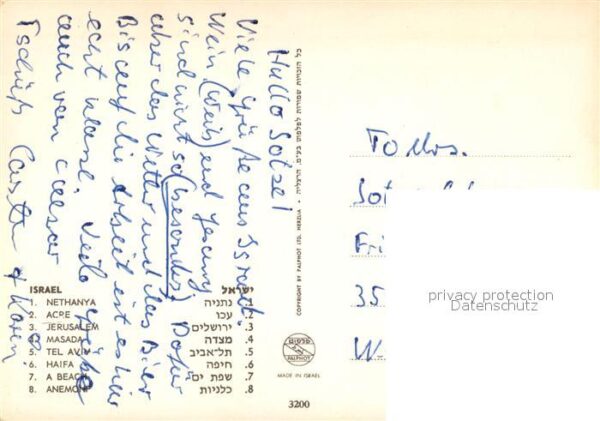 Hallo Sotzel
Viele Grüße aus Israel.
Wein, (Weib) und Gesang
sind nicht so (besonders). Dafür
aber das Wetter und das Bier
Bis auf die Arbeit ist es hier
echt klasse. Viele Grüße
auch von
Tschüß Carsten + Karin
ISRAEL
1. NETHANYA
2. ACRE
3. JERUSALEM
4. MASADA
5. TEL AVIV
6. HAIFA
7. A BEACH
8. ANEMONE
ישראל
1. נתניה
2. עכו
3. ירושלים
4. מצדה
5. תל־אביב
6. חיפה
7. שפת ים
8. כלניות
כל הזכויות שמורות לפלפוט בע"מ, הרצליה
COPYRIGHT BY PALPHOT LTD. HERZLIA
פלפוט
PALPHOT
MADE IN ISRAEL
3200
To Mrs.
Fri
35
W-
privacy protection
Datenschutz